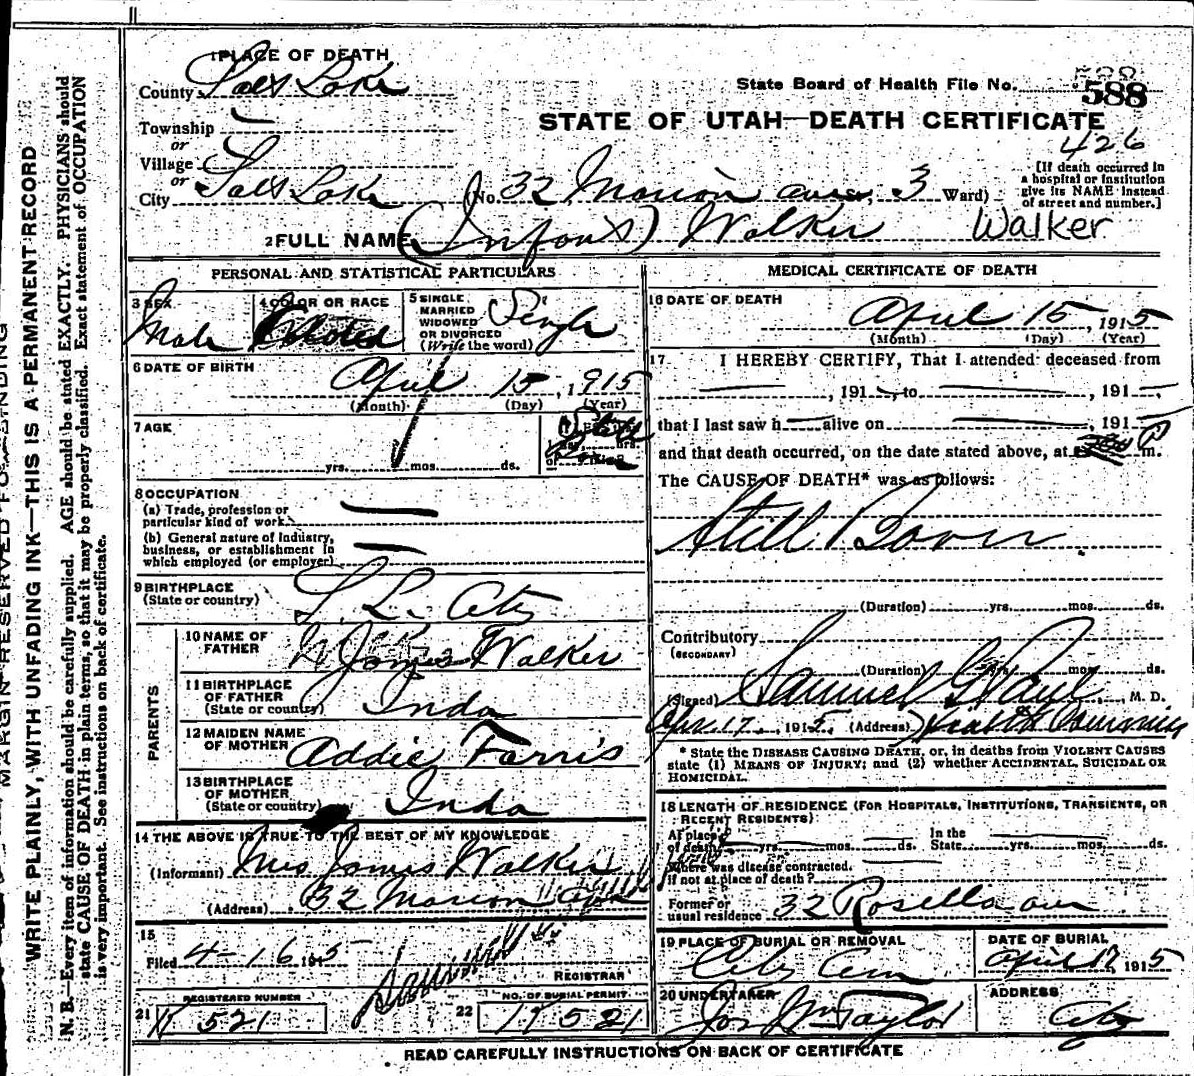 1 PLACE OF DEATH
County Salt Lake
Township
or
Village
or
City Salt Lake (No. 32 Marion ave, 3 Ward)
State Board of Health File No. 588
STATE OF UTAH—DEATH CERTIFICATE
426
[If death occurred in
a hospital or institution
give its NAME instead
of street and number.]
2 FULL NAME (Infant) Walker Walker
PERSONAL AND STATISTICAL PARTICULARS
3 SEX
Male
4 COLOR OR RACE
Colored
5 SINGLE,
MARRIED
WIDOWED
OR DIVORCED
(Write the word)
Single
6 DATE OF BIRTH
April 15, 1915
(Month) (Day) (Year)
7 AGE
yrs. mos. ds.
8 OCCUPATION
(a) Trade, profession or
particular kind of work
(b) General nature of industry,
business, or establishment in
which employed (or employer)
9 BIRTHPLACE
(State or country)
S. L. City
PARENTS
10 NAME OF
FATHER
James Walker
11 BIRTHPLACE
OF FATHER
(State or country)
Inda
12 MAIDEN NAME
OF MOTHER
Addie Farris
13 BIRTHPLACE
OF MOTHER
(State or country)
Inda
14 THE ABOVE IS TRUE TO THE BEST OF MY KNOWLEDGE
(Informant) Mrs James Walker
(Address) 32 Marion
15
Filed 4-16 1915
REGISTRAR
REGISTERED NUMBER
21
521
NO. OF BURIAL PERMIT
22
MEDICAL CERTIFICATE OF DEATH
16 DATE OF DEATH
April 15, 1915
(Month) (Day) (Year)
17 I HEREBY CERTIFY, That I attended deceased from
, 191 , to , 191 ,
that I last saw h alive on , 191
and that death occurred, on the date stated above, at P m.
The CAUSE OF DEATH* was as follows:
Still Born
(Duration) yrs. mos. ds.
Contributory
(SECONDARY)
(Duration) yrs. mos. ds.
(Signed) Samuel G. Paul, M. D.
Apr. 17, 1915. (Address) Health
* State the DISEASE CAUSING DEATH, or, in deaths from VIOLENT CAUSES
state (1) MEANS OF INJURY; and (2) whether ACCIDENTAL, SUICIDAL OR
HOMICIDAL.
18 LENGTH OF RESIDENCE (FOR HOSPITALS, INSTITUTIONS, TRANSIENTS, OR
RECENT RESIDENTS)
At place
of death yrs. mos. ds.
In the
State yrs. mos. ds.
Where was disease contracted.
if not at place of death?
Former or
usual residence 32 Rosella ave
19 PLACE OF BURIAL OR REMOVAL
City Cem
DATE OF BURIAL
April 17, 1915
20 UNDERTAKER
Jos Wm Taylor
ADDRESS
City
READ CAREFULLY INSTRUCTIONS ON BACK OF CERTIFICATE
MARGIN RESERVED FOR BINDING
WRITE PLAINLY, WITH UNFADING INK—THIS IS A PERMANENT RECORD
N. B.—Every item of information should be carefully supplied. AGE should be stated EXACTLY. PHYSICIANS should
state CAUSE OF DEATH in plain terms, so that it may be properly classified. Exact statement of OCCUPATION
is very important. See instructions on back of certificate.